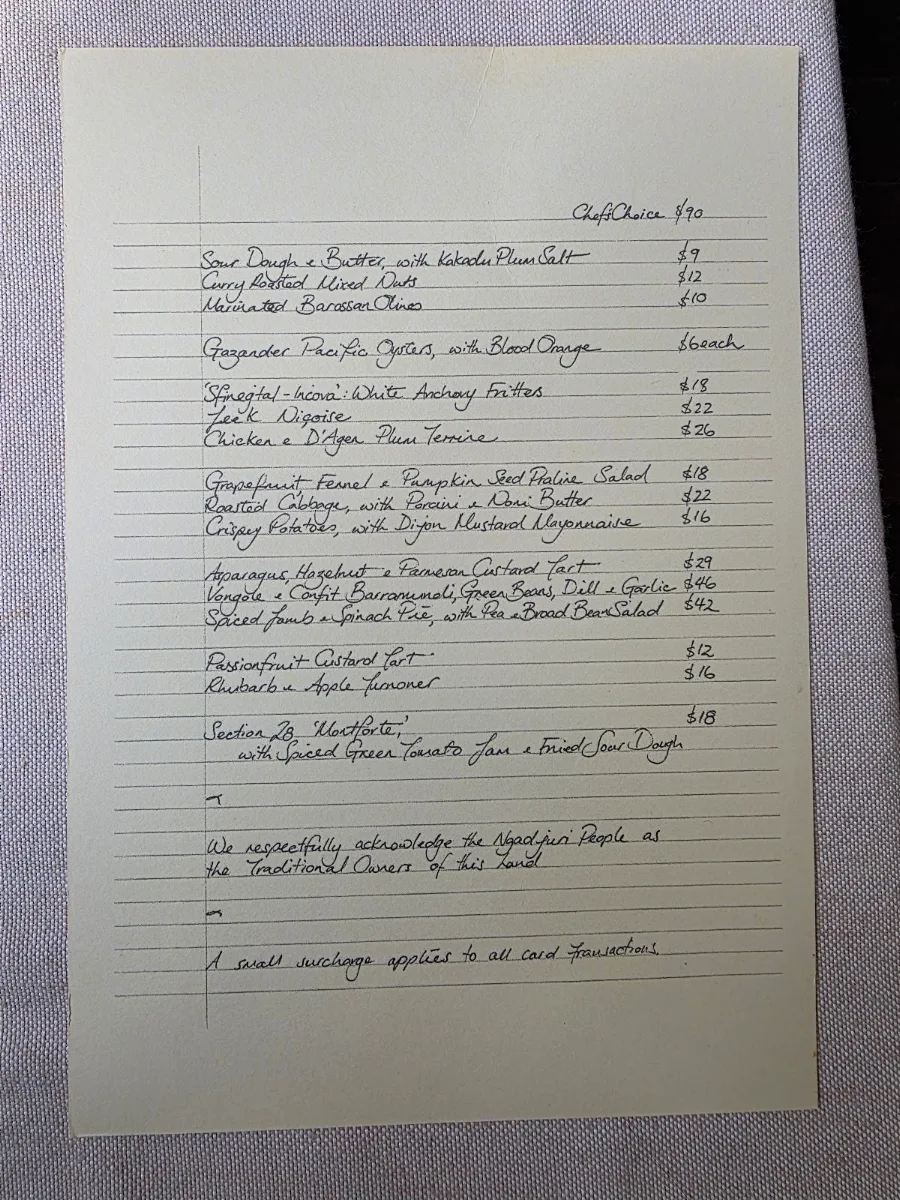 Chef's Choice $90
Sour Dough e Butter, with Kakadu Plum Salt $9
Curry Roasted Mixed Nuts $12
Marinated Barossan Olives $10
Gazander Pacific Oysters, with Blood Orange $6 each
White Anchovy Fritters $18
Leek Niçoise $22
Chicken e D'Agen Plum Terrine $26
Grapefruit, Fennel e Pumpkin Seed Praline Salad $18
Roasted Cabbage, with Porcini e Nori Butter $22
Crispy Potatoes, with Dijon Mustard Mayonnaise $16
Asparagus, Hazelnut e Parmesan Custard Tart $29
Vongole e Confit Barramundi, Green Beans, Dill e Garlic $46
Spiced Lamb e Spinach Pie, with Pea e Broad Bean Salad $42
Passionfruit Custard Tart $12
Rhubarb e Apple Turnover $16
Section 28 'Montforte', $18
with Spiced Green Tomato Jam e Fried Sour Dough
~
We respectfully acknowledge the Ngadjuri People as
the Traditional Owners of this Land
~
A small surcharge applies to all card transactions.